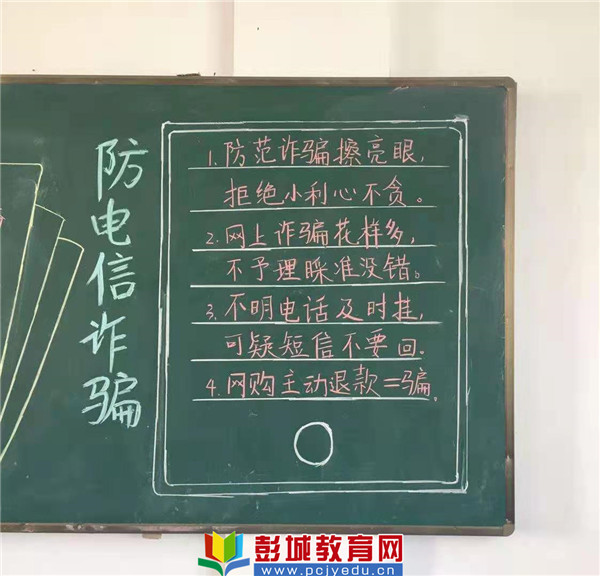 防电信诈骗
1.防范诈骗擦亮眼,
拒绝小利心不贪。
2.网上诈骗花样多,
不予理睬准没错。
3.不明电话及时挂,
可疑短信不要回。
4.网购主动退款=骗。
彭城教育网
www.pcjyedu.cn